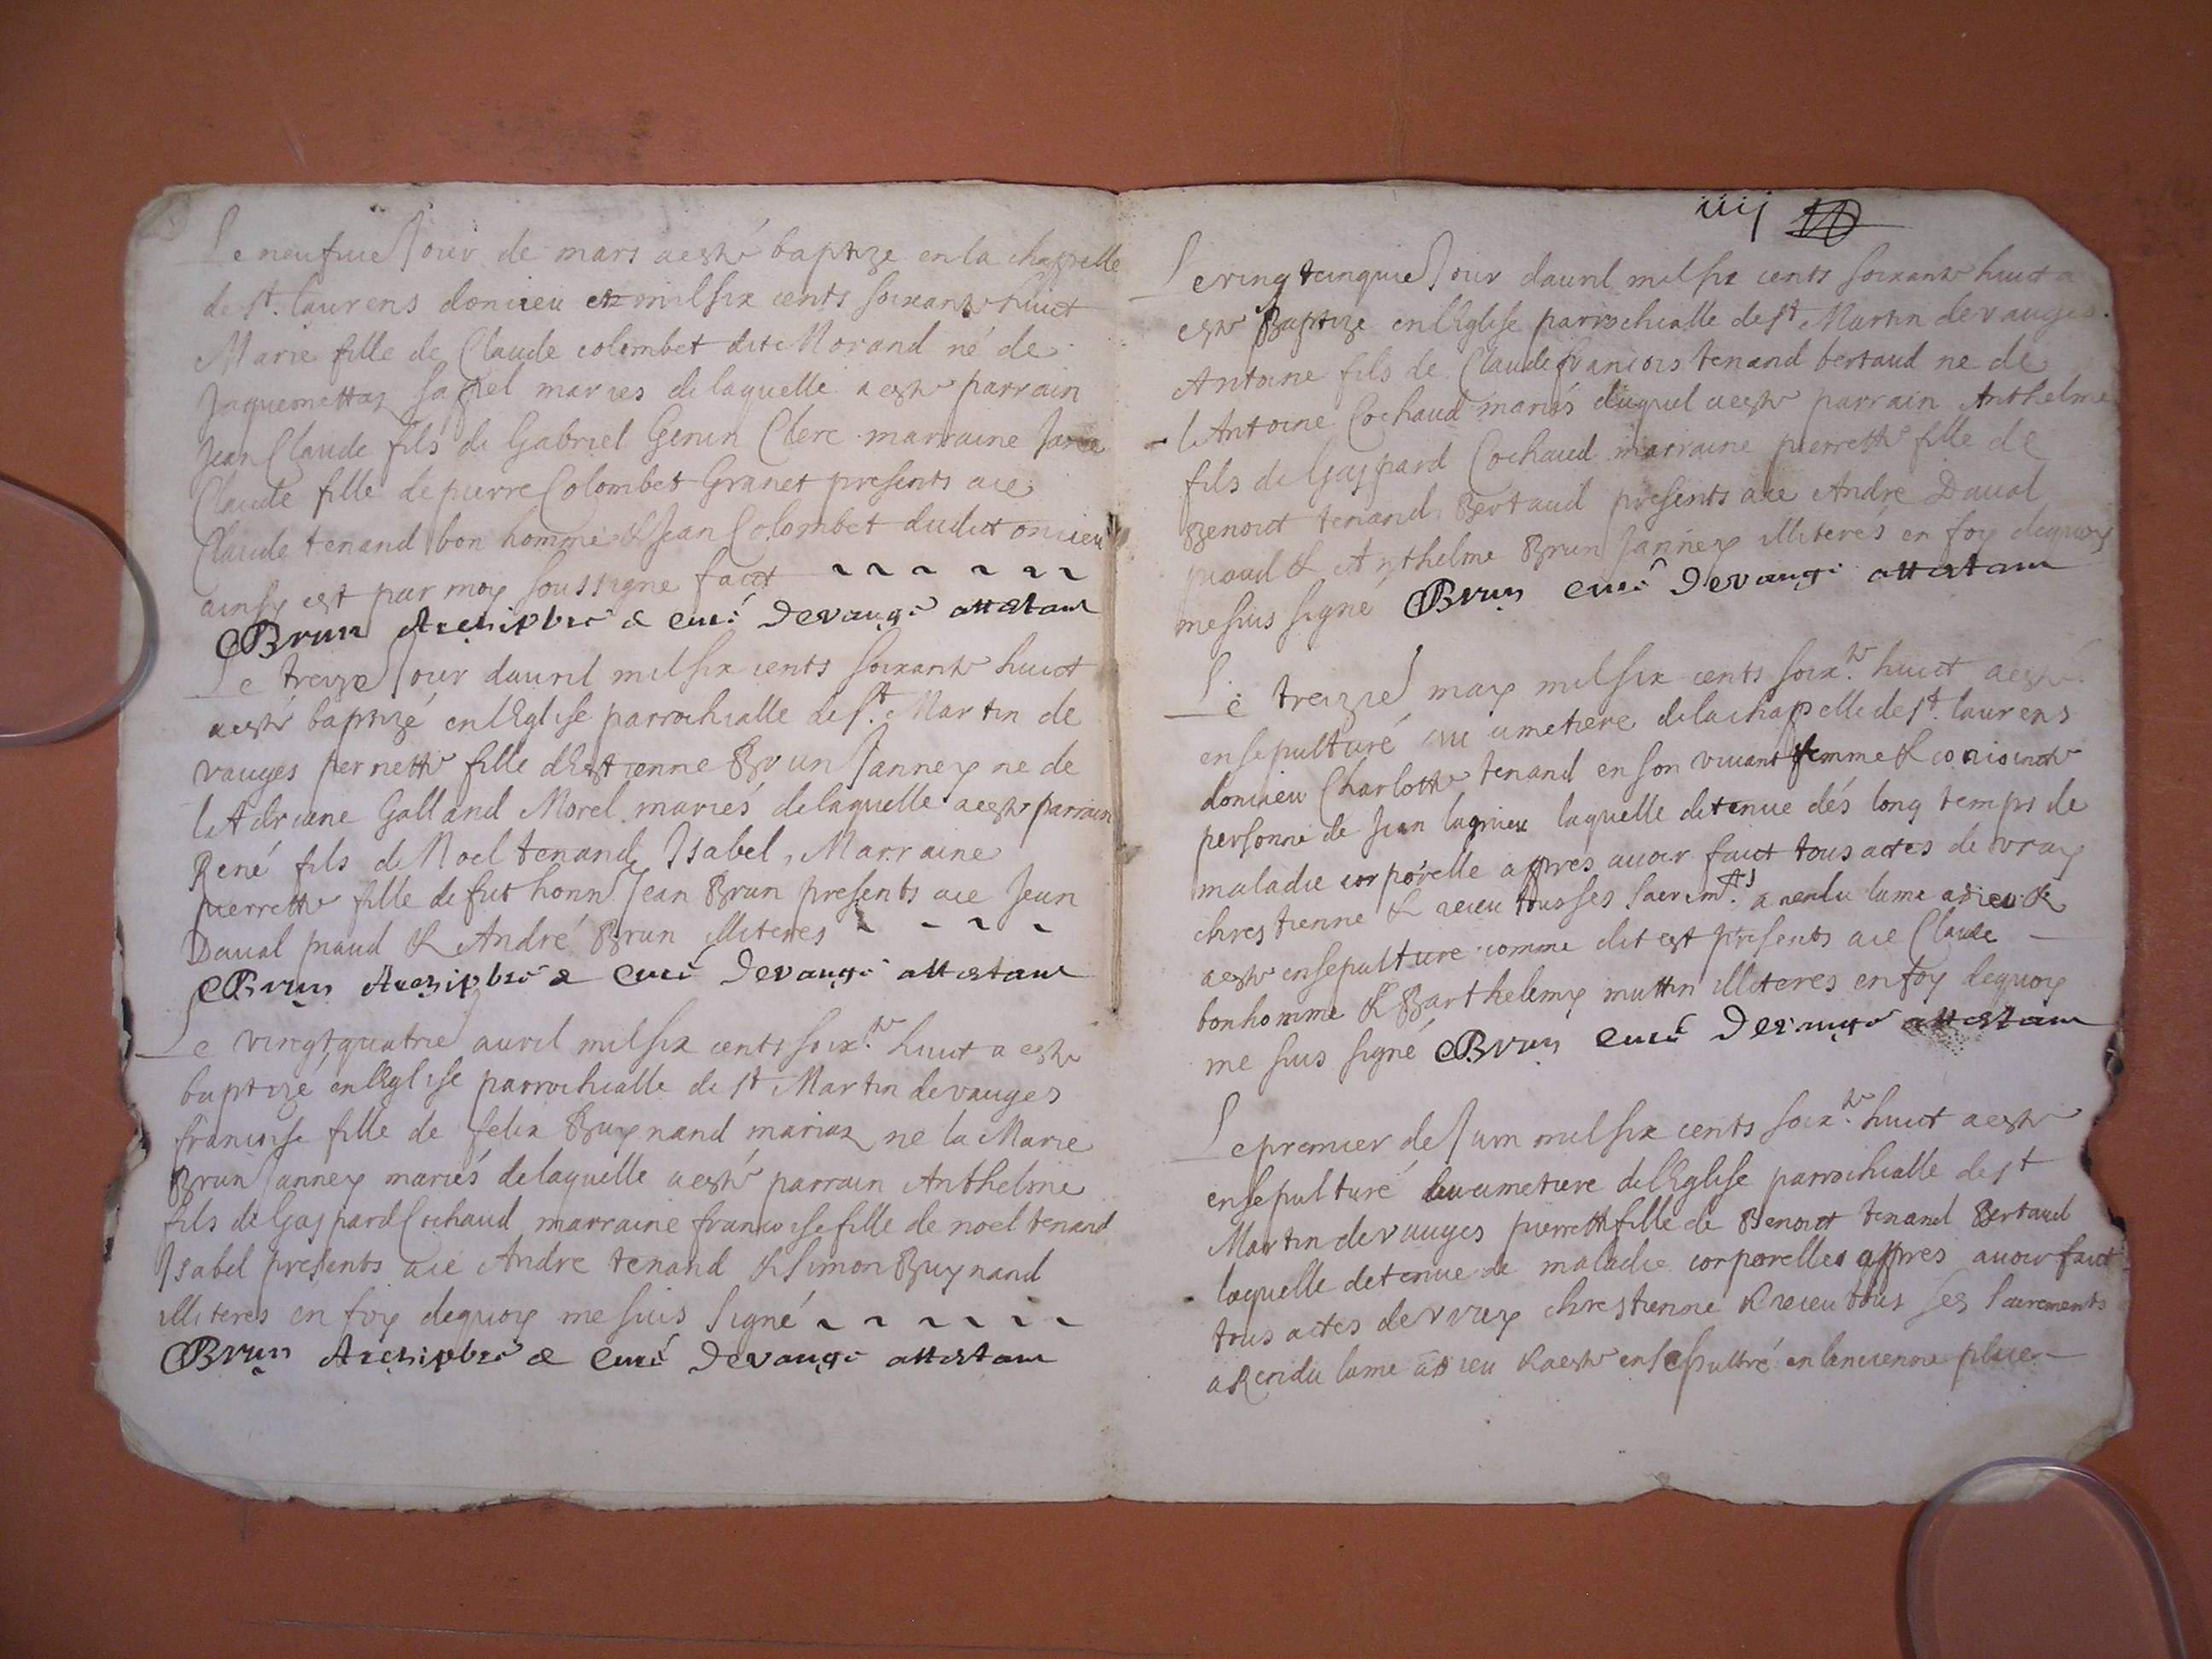 Le neufvie Jour de mars aesté baptize en la chappelle
de st. laurens donieu et milsix cents soixante huict
Marie fille de Claude colombet dit Morand né de
Jaquemettaz mariés de laquelle a este parrain
Jean Claude fils de Gabriel Genin Clerc marraine
Claude fille de pierre Colombet Granet presents ace
Claude tenand bon homme & Jean Colombet dudict onieu
ainsy est par moy soussigne faict
Brun Archipbre & curé devauge attestant
Le treize Jour dauril milsix cents soixante huict
aesté baptizé enlEglise parrochialle de st. Martin de
vauges pernette fille dEstienne Brun Janney ne de
lAdriane Galland Morel mariés delaquelle aeste parrain
René fils de Noel tenand Isabel, Marraine
pierrette fille defut honn. Jean Brun presents ace Jean
Daual praud & André Brun illiteres
Brun Archipbre & curé devauge attestant
Le vingtquatrie auril milsix cents soix.te huict a este
baptizé enlEglise parrochialle de st Martin devauges
francoise fille de felix Buynand mariaz ne la Marie
Brun Janney mariés delaquelle aesté parrain Anthelme
fils de Gaspard Cochaud marraine francoise fille de noel tenand
Isabel presents ace Andre tenand & Simon Buynand
illiteres en foy dequoy mesuis signé
Brun Archipbre & curé devauge attestant
iiij
Le vingtcinquie Jour dauril milsix cents soixante huict a
este Baptize enlEglise parrochialle de st Martin devauges.
Antoine fils de Claudefrancois tenand bertaud ne de
lAntoine Cochaud mariés duquel aeste parrain Anthelme
fils de Gaspard Cochaud marraine pierrette fille de
Benoict tenand Bertaud presents ace Andre Daual
praud & Anthelme Brun Janney illiterés en foy dequoy
mesuis signé Brun curé devauge attestant
Le treizie may milsix cents soix.te huict aesté
ensepulturé au cimetiere delachapelle de st. laurens
donieu Charlotte tenand en son viuant femme & conioincte
personne de Jean lagnieu laquelle detenue dés long temps de
maladie corporelle appres auoir faict tous actes de vray
chrestienne & receu tousses sacrem.ts a rendu lame adieu &
aeste ensepulture comme dit est presents ace Claude
bonhomme & Barthelemy muttin illiteres enfoy dequoy
me suis signé Brun curé devauge attestant
Le premier de Juin milsix cents soix.te huict aeste
ensepulturé au cimetiere delEglise parrochialle de st
Martin devauges pierrette fille de Benoict tenand Bertaud
laquelle detenue de maladie corporelles appres auoir faict
tous actes devray chrestienne & receu tous ses sacrements
aRendu lame adieu & aeste ensepulturé en lencienne place